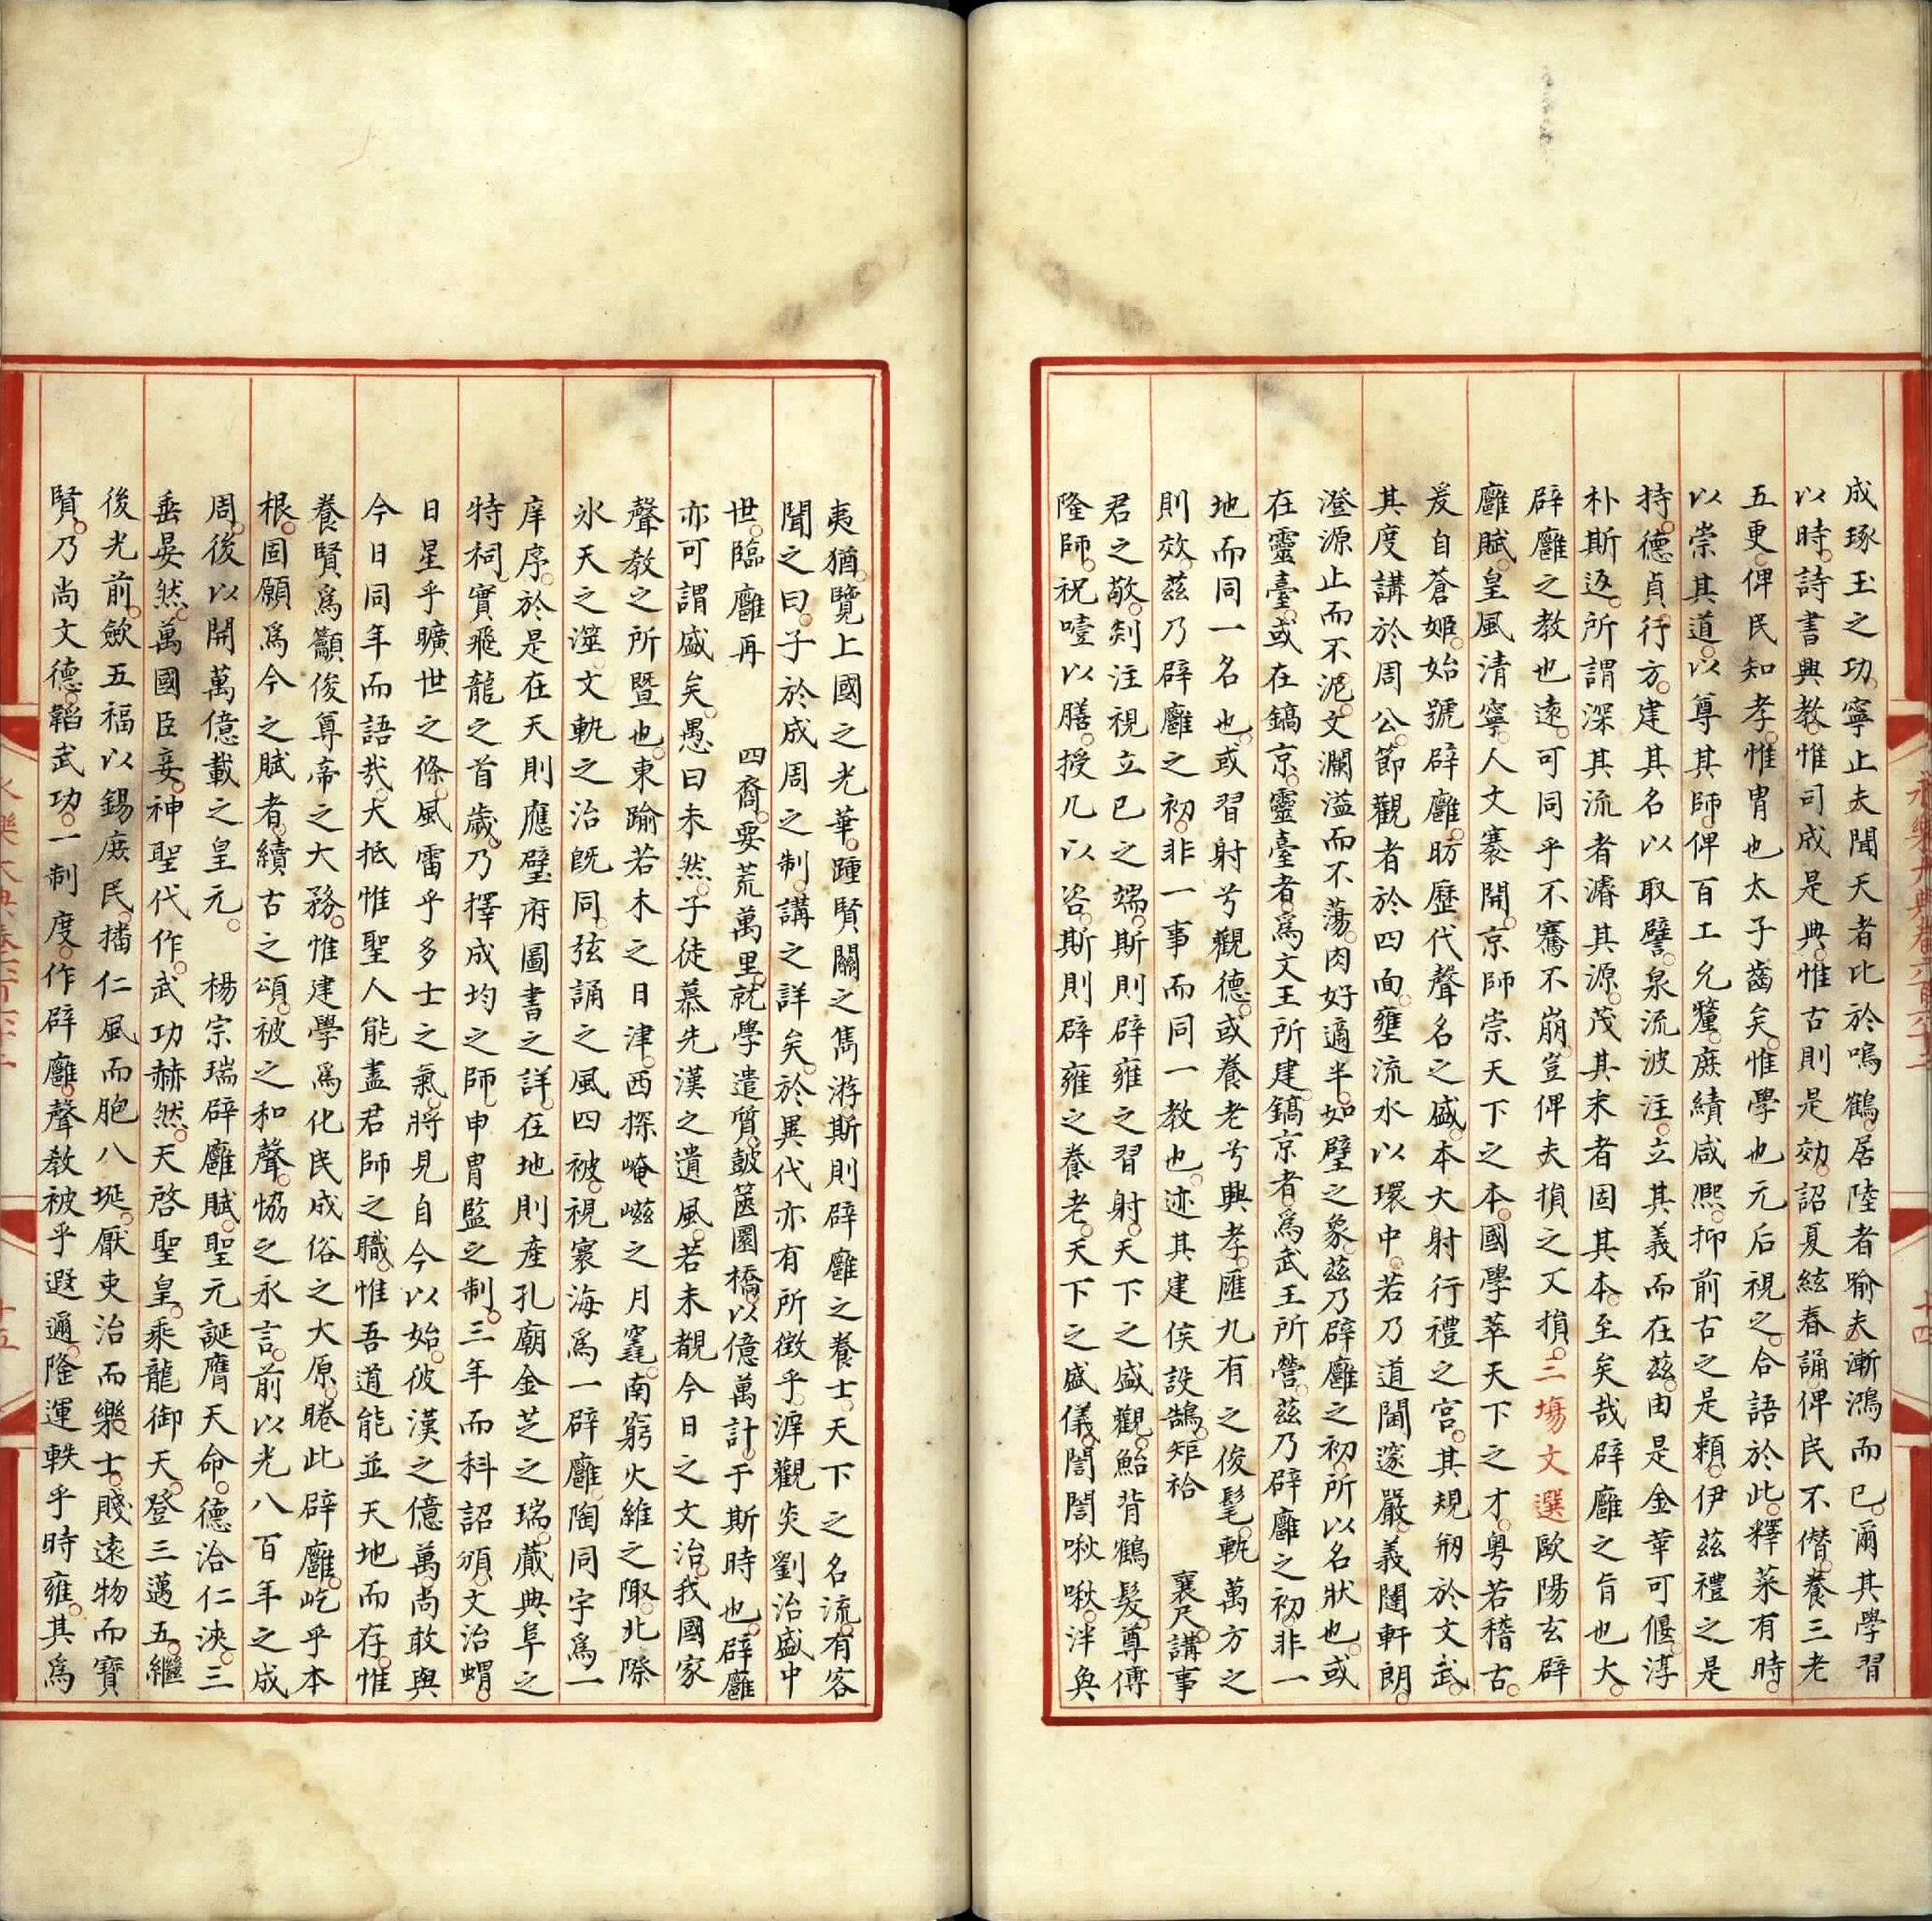 成琢玉之功。寧止夫聞天者比於鳴鶴。居陸者喻夫漸鴻而已。爾其學習
以時。詩書典教。惟司成是典。惟古則是効。詔夏絃春誦。俾民不僭。養三老
五更。俾民知孝。惟胄也太子齒矣。惟學也元后視之。合語於此。釋菜有時。
以崇其道。以尊其師。俾百工允釐。庶績咸熙。抑前古之是賴。伊茲禮之是
持。德貞行方。建其名以取譬。泉流波注。立其義而在茲。由是金華可偃。淳
朴斯返。所謂深其流者濬其源。茂其末者固其本。至矣哉辟廱之旨也大。
辟廱之教也遠。可同乎不騫不崩。豈俾夫損之又損。三塲文選歐陽玄辟
廱賦。皇風清寧。人文褰開。京師崇天下之本。國學萃天下之才。粵若稽古。
爰自蒼姬。始號辟廱。昉歷代聲名之盛。本大射行禮之宮。其規剏於文武。
其度講於周公。節觀者於四面。壅流水以環中。若乃道闡邃嚴。義闥軒朗。
澄源止而不泥。文瀾溢而不蕩。肉好適半。如璧之象。茲乃辟廱之初。所以名狀也。或
在靈臺。或在鎬京。靈臺者。為文王所建。鎬京者為武王所營。茲乃辟廱之初非一
地而同一名也。或習射兮觀德。或養老兮興孝。匯九有之俊髦。軌萬方之
則效。茲乃辟廱之初。非一事而同一教也。迹其建侯設鵠。矩袷 襄尺。講事
君之敬。剡注視立巳之端。斯則辟雍之習射。天下之盛觀。鮐背鶴髮。尊傅
隆師。祝噎以膳。授几以咨。斯則辟雍之養老。天下之盛儀。誾誾啾啾。泮奐
夷猶。覽上國之光華。踵賢關之雋游。斯則辟廱之養士。天下之名流。有客
聞之曰。子於成周之制。講之詳矣。於異代亦有所徵乎。滹觀炎劉治盛中
世。臨廱再 四裔。要荒萬里。就學遣質。鼓篋圜橋。以億萬計。于斯時也。辟廱
亦可謂盛矣。愚曰未然。子徒慕先漢之遺風。若未覩今日之文治。我國家
聲教之所暨也。東踰若木之日津。西探崦嵫之月窟。南窮火維之陬。北際
氷天之澨。文軌之治既同。弦誦之風四被。視寰海為一辟廱。陶同宇為一
庠序。於是在天則應璧府圖書之詳。在地則產孔廟金芝之瑞。蕆典阜之
特祠。實飛龍之首歲。乃擇成均之師。申胄監之制。三年而科詔頒。文治蝟。
日星乎曠世之條。風雷乎多士之氣。將見自今以始。彼漢之億萬。尚敢與
今日同年而語㢤。大抵惟聖人能盡君師之職。惟吾道能並天地而存。惟
養賢為籲俊尊帝之大務。惟建學為化民成俗之大原。睠此辟廱。屹乎本
根。固願為今之賦者。續古之頌。被之和聲。恊之永言。前以光八百年之成
周。後以開萬億載之皇元。 楊宗瑞辟廱賦。聖元誕膺天命。德洽仁浹。三
垂晏然。萬國臣妾。神聖代作。武功赫然。天啓聖皇。乘龍御天。登三邁五。繼
後光前。斂五福以錫庶民。播仁風而胞八埏。厭吏治而樂士。賤遠物而寶
賢。乃尚文德。韜武功。一制度。作辟廱。聲教被乎遐邇。隆運軼乎時雍。其為